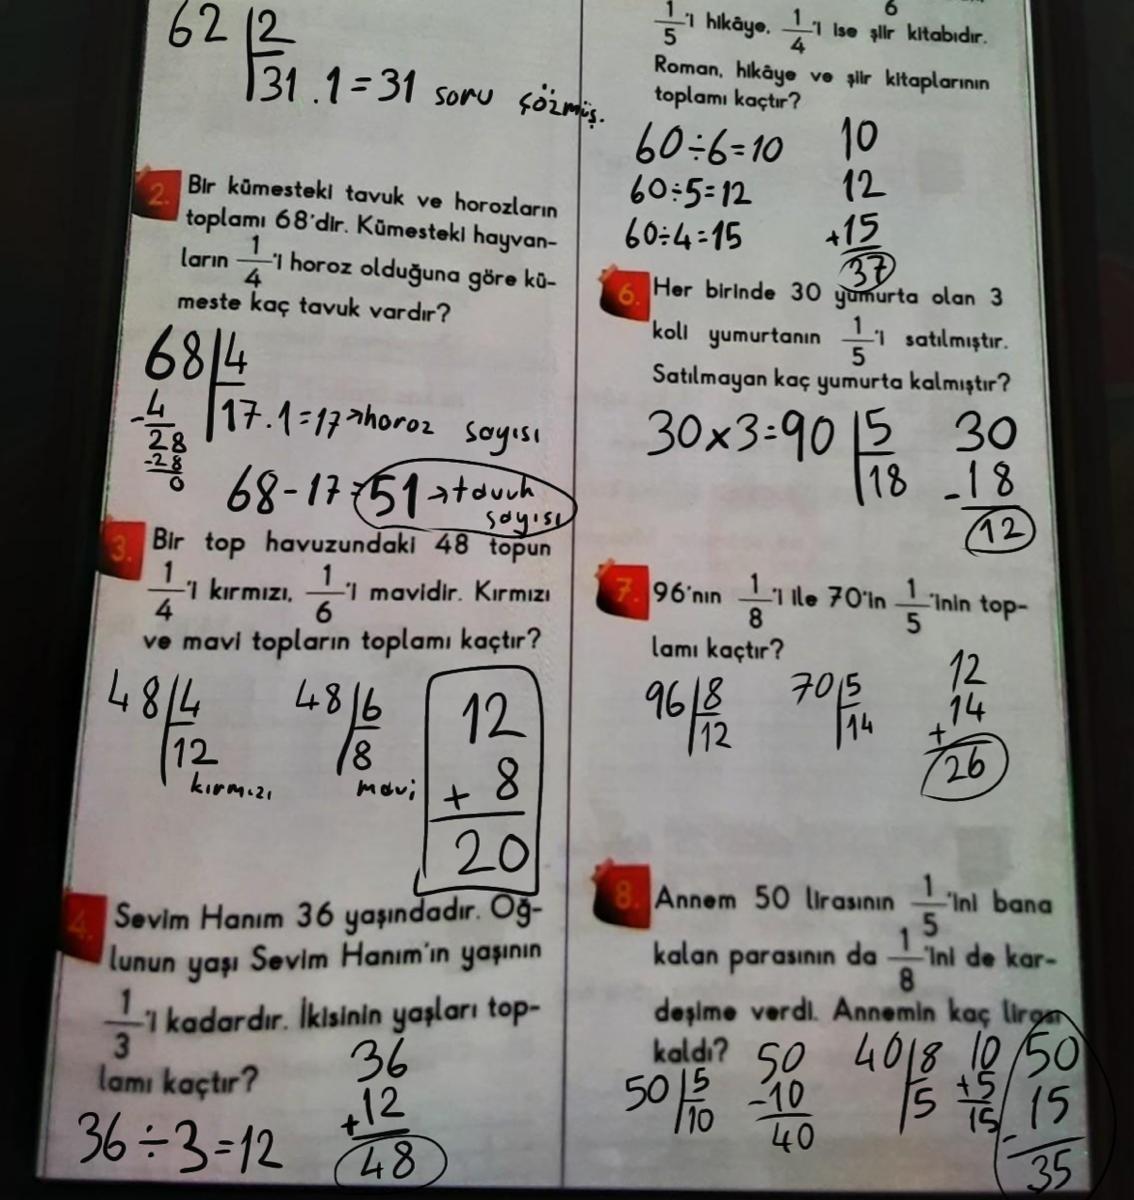 62 2
31 . 1 = 31 soru çözmüş.
2. Bir kümesteki tavuk ve horozların
toplamı 68'dir. Kümesteki hayvan-
ların 1/4'i horoz olduğuna göre kü-
meste kaç tavuk vardır?
68 4
-4 17 . 1 = 17 → horoz sayısı
28
-28
0
68 - 17 = 51 → tavuk
sayısı
3. Bir top havuzundaki 48 topun
1/4'i kırmızı, 1/6'i mavidir. Kırmızı
ve mavi topların toplamı kaçtır?
48 4
12
kırmızı
48 6
8
mavi
12
+ 8
20
4. Sevim Hanım 36 yaşındadır. Oğ-
lunun yaşı Sevim Hanım'ın yaşının
1/3'i kadardır. İkisinin yaşları top-
lamı kaçtır?
36 ÷ 3 = 12
36
+12
48
6
1/5'i hikâye, 1/4'i ise şiir kitabıdır.
Roman, hikâye ve şiir kitaplarının
toplamı kaçtır?
60 ÷ 6 = 10
60 ÷ 5 = 12
60 ÷ 4 = 15
10
12
+15
37
6. Her birinde 30 yumurta olan 3
koli yumurtanın 1/5'i satılmıştır.
Satılmayan kaç yumurta kalmıştır?
30 x 3 = 90 5
18
30
-18
12
7. 96'nın 1/8'i ile 70'in 1/5'inin top-
lamı kaçtır?
96 8
12
70 5
14
12
14
+
26
8. Annem 50 lirasının 1/5'ini bana
kalan parasının da 1/8'ini de kar-
deşime verdi. Annemin kaç lirası
kaldı?
50 5
10
50
-10
40
40 8
5
10
+5
15
50
- 15
35